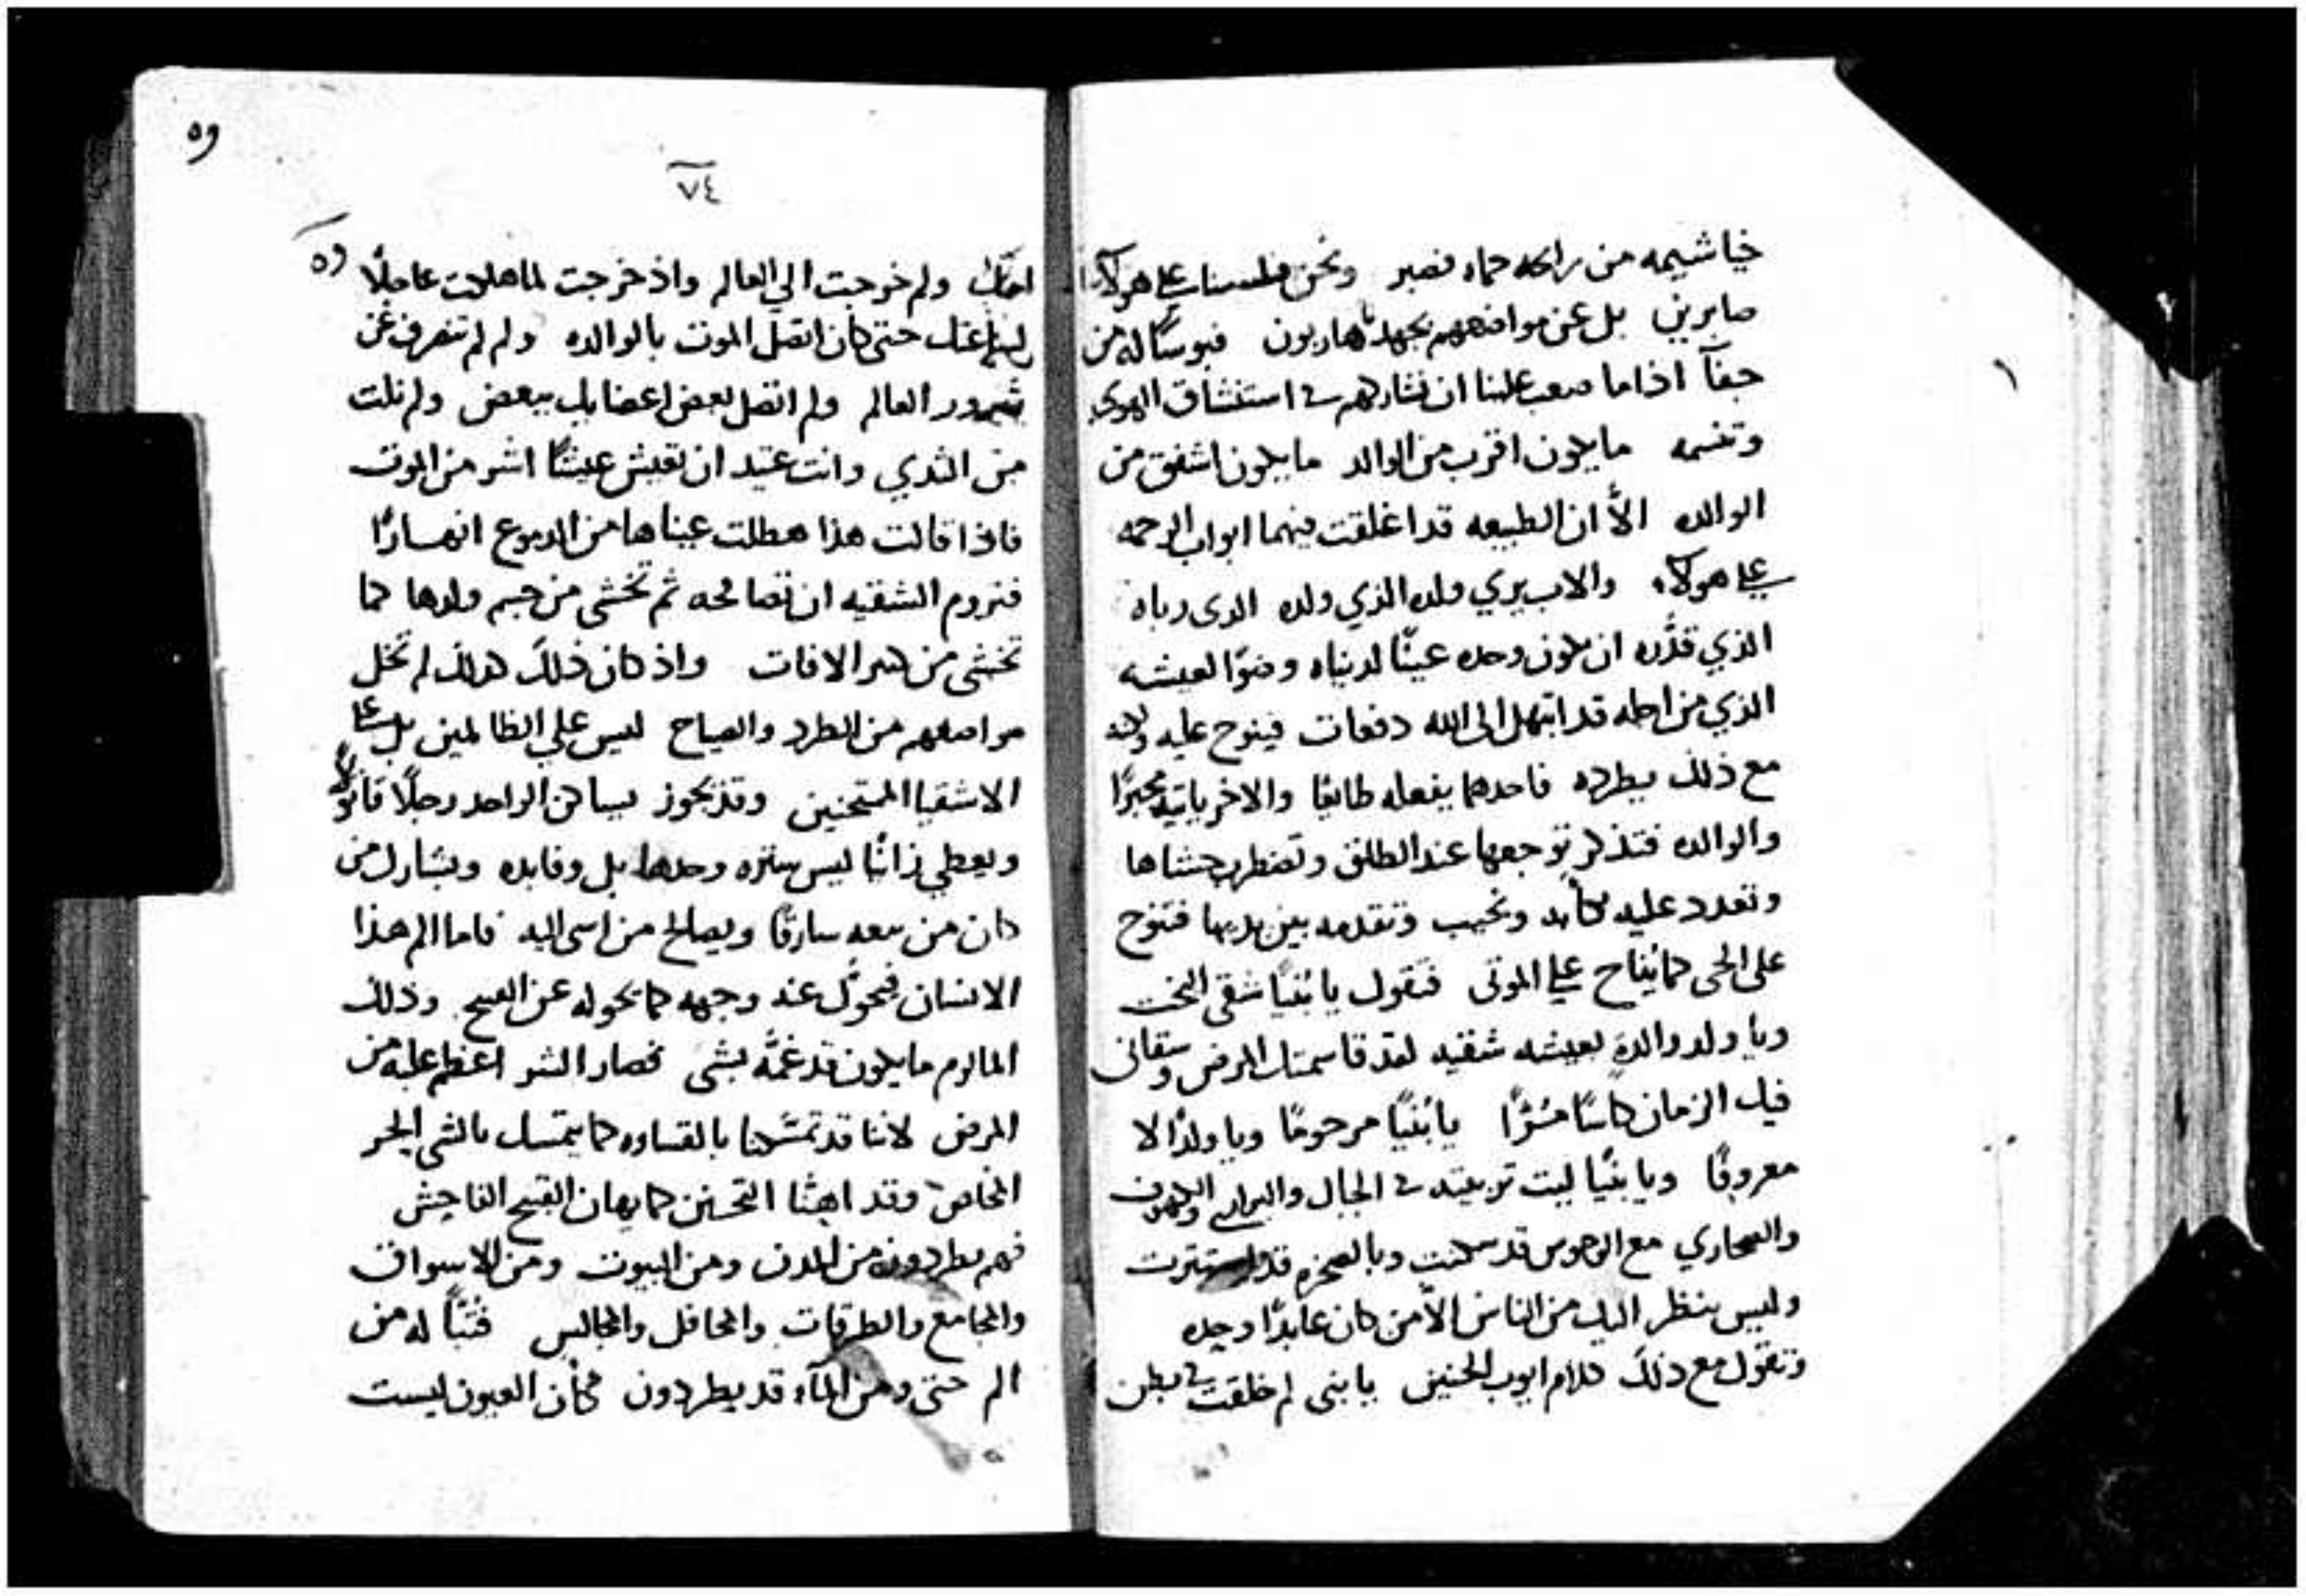 خياشيمه من رائحه حماه فصبر ونحن فلسنا علي هولاء
صابرين بل عن مواضعهم بجهدنا هاربون فبوسًا له من
جفآ اذا ما صعب علينا ان نشاركهم في استنشاق الهوي
وتنسمه ما يكون اقرب من الوالد ما يكون اشفق من
الوالده الاَّ ان الطبيعه قد اغلقت فيهما ابواب الرحمه
علي هولاء والاب يري ولده الذي ولده الدى رباه
الذي قدَّره ان يكون وحده عينًا لدنياه وضوًا لعيشه
الذي من اجله قد ابتهل الى الله دفعات فينوح عليه ولانه
مع ذلك يطرده فاحدهما يفعله طايعًا والاخر ياتيه مجبرًا
والوالده فتذكر توجعها عند الطلق وتضطرب حشاها
وتعدد عليه كآبه ونحيب وتقدمه بين يديها فتنوح
على الحى كما يُناح علي الموتى فتقول يا بُنيًا شقى البخت
ويا ولد والدةٍ بعيشه شقيه لقد قاسمتك المرض وسقانى
فيك الزمان كاسًا مُرًّا يا بُنيًا مرحومًا ويا ولدًا لا
معروفًا ويا بنيًا ليت تربيته في الجبال والبراري والكهوف
والصحاري مع الوحوس قد سكنت وبالصخره قد استترت
وليس ينظر اليك من الناس الاَّ من كان عابدًا وحده
وتقول مع ذلك كلام ايوب الحنين يا بنى لم خلقت في بطن
٥٩
٧٤
امك ولم خرجت الي العالم واذ خرجت لما هلكت عاجلًا
حتى كان اتصل الموت بالوالده ولم لم تنصرف عن
شرور العالم ولم اتصل بعض اعضايك ببعض ولم نلت
من الثدي وانت عتيد ان تعيش عيشًا اشر من الموت
فاذا قالت هذا هطلت عيناها من الدموع انهارًا
فتروم الشقيه ان تصالحه ثم تخشى من جسم ولدها كما
تخشى من الافات واذ كان ذلك كذلك لم تخل
مواضعهم من الطرد والصياح ليس علي الظالمين بل علي
الاشقيا الممتحنين وقد يجوز يساكن الواحد رجلًا قاتولًا
ويعطي زانيًا ليس ستره وحدها بل وفايده ويشارك من
كان من بيعه سارقًا ويصالح من اسى اليه فاما الم هذا
الانسان فيحوَّل عنه وجهه كما يحوله عن القبيح وذلك
المالوم ما يكون قد غمَّه بشى فصار الشر اعظم عليه من
المرض لاننا قد تمسَّكنا بالقساوه كما يتمسك بالشى الحر
الخالص وقد اهنَّا التحنن كما يهان القبيح الفاحش
فهم يطردون من المدن ومن البيوت ومن الاسواق
والمجامع والطرقات والمحافل والمجالس فتبًّا له من
الم حتى ومن المآء قد يطردون كأن العيون ليست